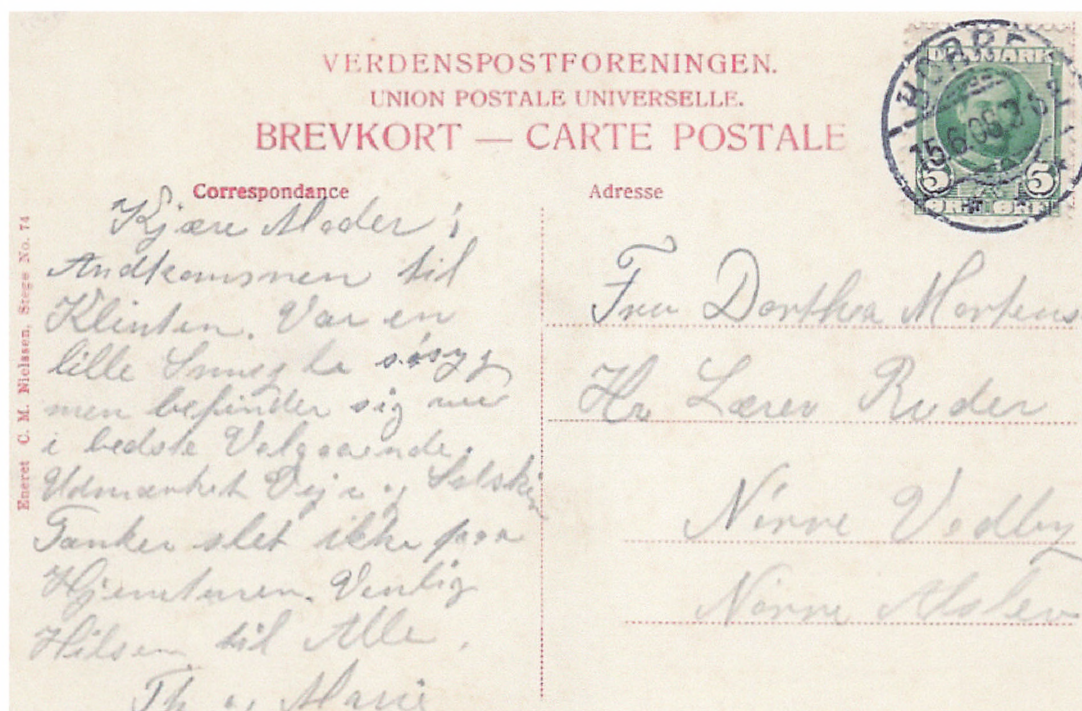 VERDENSPOSTFORENINGEN.
UNION POSTALE UNIVERSELLE.
BREVKORT — CARTE POSTALE
DANMARK
5 5
ØRE ØRE
15.6.09.
Correspondance
Kjære Moder!
Andkomsnen til
Klinten. Var en
lille Smugle søsyg
men befinder sig nu
i bedste Velgaaende.
Udmærket Vejr og Selskab
Tænker slet ikke paa
Hjemturen. Venlig
Hilsen til Alle.
Th og Marie
Adresse
Fru Dorthea Mortens
Hr Lærer Ruder
Nörre Vedby
Nörre Alslev
Eneret C. M. Nielssen, Stege No. 74